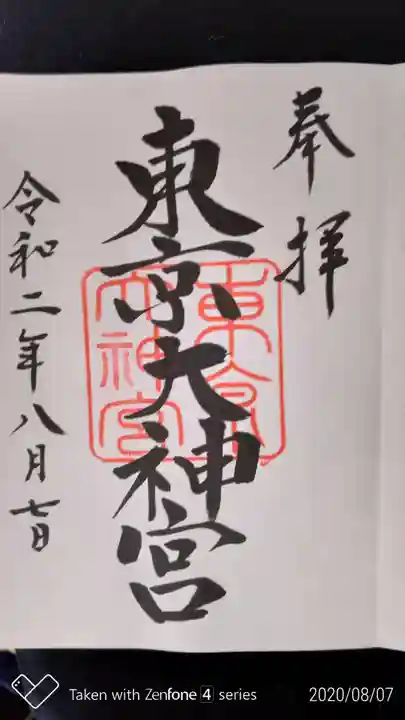 奉拝
東京大神宮
東京
大神宮
令和二年八月七日
Taken with Zenfone 4 series
2020/08/07